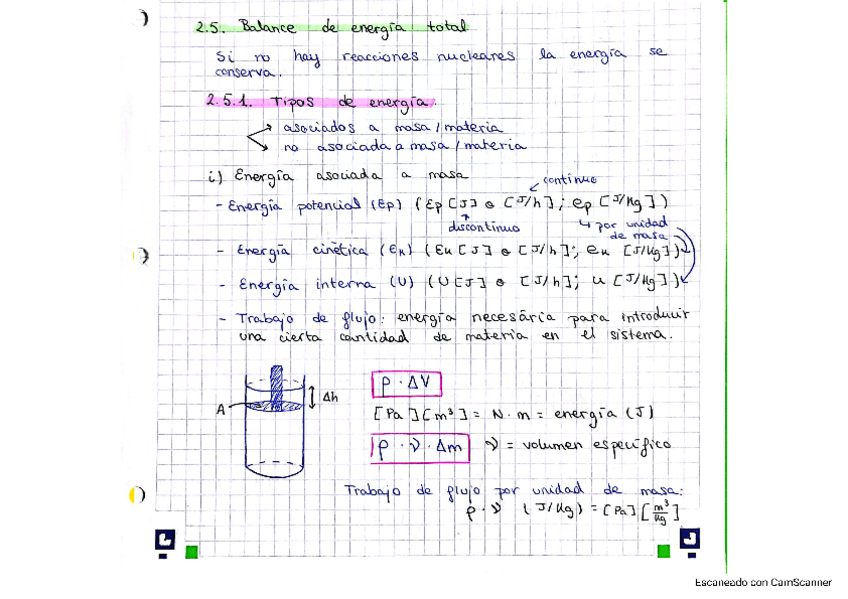 2.5. Balance de energía total
Si no hay reacciones nucleares la energía se
conserva.
2.5.1. Tipos de energía.
asociados a masa/materia
no asociada a masa/materia
i) Energía asociada a masa
continuo
- Energía potencial (Ep) (Ep [J] o [J/h]; ep [J/kg])
discontinuo
↳ por unidad
de masa
- Energía cinética (Ek) (Ek [J] o [J/h]; ek [J/kg])
- Energía interna (U) (U [J] o [J/h]; u [J/kg])
- Trabajo de flujo: energía necesária para introducir
una cierta cantidad de materia en el sistema.
A
Δh
p · ΔV
[Pa][m³] = N·m = energía (J)
p · ν · Δm ν = volumen específico
Trabajo de flujo por unidad de masa:
p·ν (J/kg) = [Pa][m³/kg]
Escaneado con CamScanner